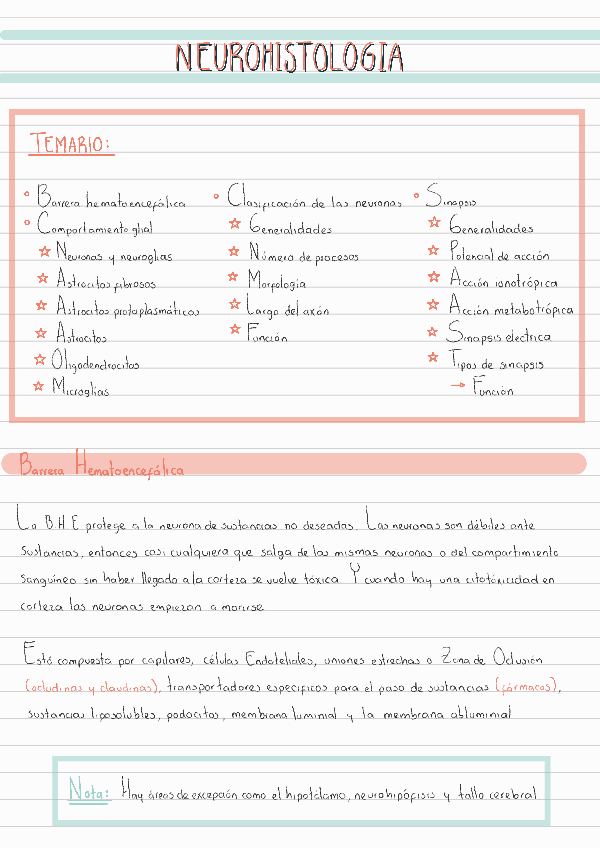 NEUROHISTOLOGIA
TEMARIO:
° Barrera hematoencefálica
° Comportamiento glial
☆ Neuronas y neuroglias
☆ Astrocitos fibrosos
☆ Astrocitos protoplasmáticos
☆ Astrocitos
☆ Oligodendrocitos
☆ Microglías
° Clasificación de las neuronas
☆ Generalidades
☆ Número de procesos
☆ Morfología
☆ Largo del axón
☆ Función
° Sinapsis
☆ Generalidades
☆ Potencial de acción
☆ Acción ionotrópica
☆ Acción metabotrópica
☆ Sinapsis electrica
☆ Tipos de sinapsis
→ Función
Barrera Hematoencefálica
La B.H.E protege a la neurona de sustancias no deseadas. Las neuronas son débiles ante
sustancias, entonces casi cualquiera que salga de las mismas neuronas o del compartimiento
sanguíneo sin haber llegado a la corteza se vuelve tóxica Y cuando hay una citotoxicidad en
corteza las neuronas empiezan a morirse
Está compuesta por capilares, células Endoteliales, uniones estrechas o Zona de Oclusión
(ocludinas y claudinas), transportadores específicos para el paso de sustancias (fármacos),
sustancias liposolubles, podocitos, membrana luminal y la membrana abluminial
Nota: Hay áreas de excepción como el hipotálamo, neurohipófisis y tallo cerebral